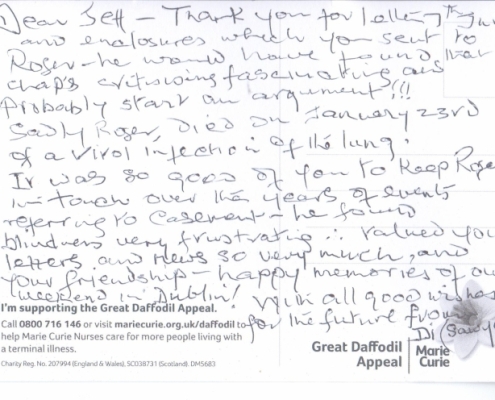 Dear Jeff – Thank you for letter
and enclosures which you sent to
Roger – he would have found that
chap's critisising fascinating and
Probably start an argument!!!
Sadly Roger, died on January 23rd
of a viral infection of the lung.
It was so good of you to keep Roger
in touch over the years of events
referring to Casement – he found
blindness very frustrating ∴ valued your
letters and News so very much, and
your friendship – happy memories of our
weekend in Dublin! With all good wishes
for the future from
Di (
I'm supporting the Great Daffodil Appeal.
Call 0800 716 146 or visit mariecurie.org.uk/daffodil to
help Marie Curie Nurses care for more people living with
a terminal illness.
Charity Reg. No. 207994 (England & Wales), SC038731 (Scotland). DM5683
Great Daffodil
Appeal
Marie
Curie